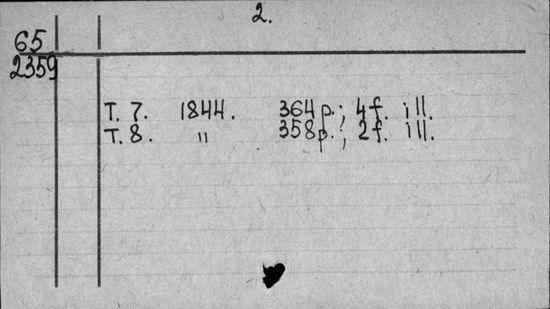 2.
65
2359
T. 7. 1844. 364 p.; 4 f. ill.
T. 8. " 358 p.; 2 f. ill.